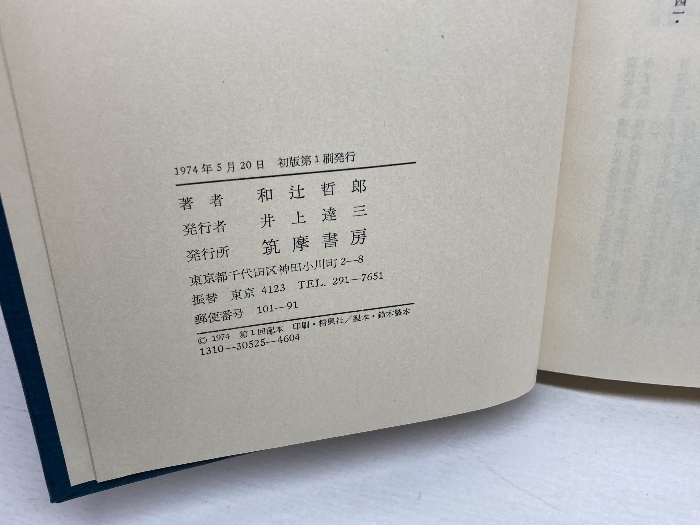 1974年5月20日 初版第1刷発行
著者 和辻哲郎
発行者 井上達三
発行所 筑摩書房
東京都千代田区神田小川町2--8
振替 東京 4123 TEL. 291-7651
郵便番号 101--91
© 1974 第1回配本 印刷・精興社/製本・鈴木製本
1310--30525--4604
四一・